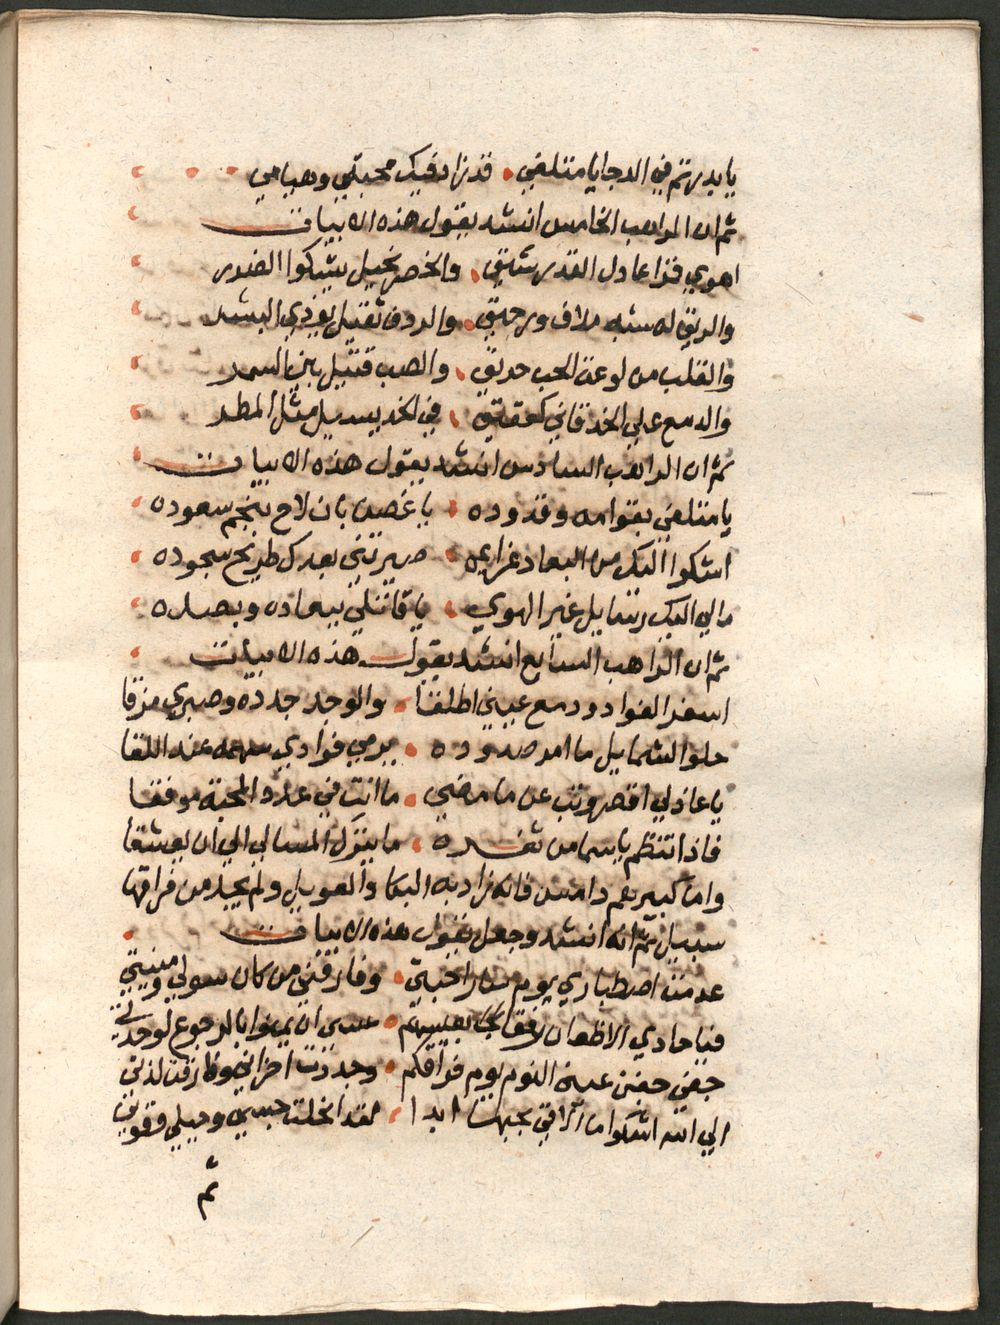 يا بدر تم في الدجا يا متلفي • قد زاد فيك محبتي وهيامي
ثم ان الراهب الخامس انشد يقول هذه الابيات
اهوي قمرا عادل القد رشيق • والخصر نحيل يشكوا الضرر
والريق له شبه سلاف ورحيق • والردف ثقيل يوذي البشر
والقلب من لوعة الحب حريق • والصب قتيل بين السمر
والدمع علي الخد قاني كعقيق • في الخد يسيل مثل المطر
ثم ان الراهب السادس انشد يقول هذه الابيات
يا متلفي بقوامه وقدوده • يا غصن بان لاح نجم سعوده
اشكوا اليك من البعاد غرايمه • صيرتني بعدك طريح سجوده
مالي اليك رسايل غير الهوي • يا قاتلي ببعاده وبصده
ثم ان الراهب السابع انشد يقول هذه الابيات
اسفر الفواد ودمع عيني اطلقا • والوجد جدده وصبري مزقا
حلو الشمايل ما امر صدوده • يرمي فوادي سهمه عند اللقا
يا عاذلي اقصر وتب عن ما مضي • ما انت في عذر المحبة موفقا
فاذا تنظم باسما من ثغره • ما يترك المسالي الي ان يعشقا
واما كبيرهم دامس فانه زاد به البكا والعويل ولم يجد من فراقها
سبيل ثم انه انشد وجعل يقول هذه الابيات
عدمت اصطباري يوم سار احبتي • وفارقني من كان سولي ومنيتي
فيا حادي الاظعان رفقا بعيسهم • عسي ان يمنوا بالرجوع لوحدتي
جفي جفن عيني النوم يوم فراقكم • وجددت احزاني وفارقت لذتي
الي الله اشكوا ما الاقي بحبها ابدا • لقد انحلت جسمي وحيلي وقوتي
ثم